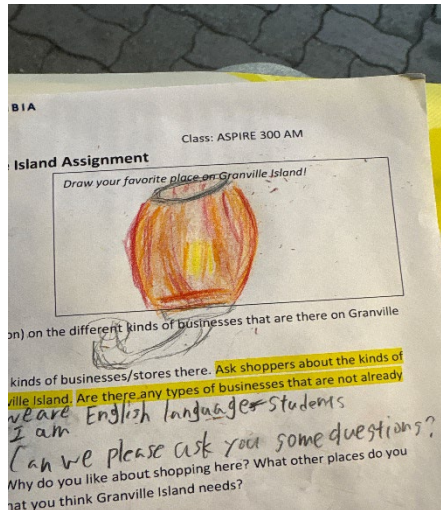 BIA
Class: ASPIRE 300 AM
Island Assignment
Draw your favorite place on Granville Island!
on) on the different kinds of businesses that are there on Granville
kinds of businesses/stores there. Ask shoppers about the kinds of
ville Island. Are there any types of businesses that are not already
we are English language students
I am
Can we please ask you some questions?
Why do you like about shopping here? What other places do you
hat you think Granville Island needs?